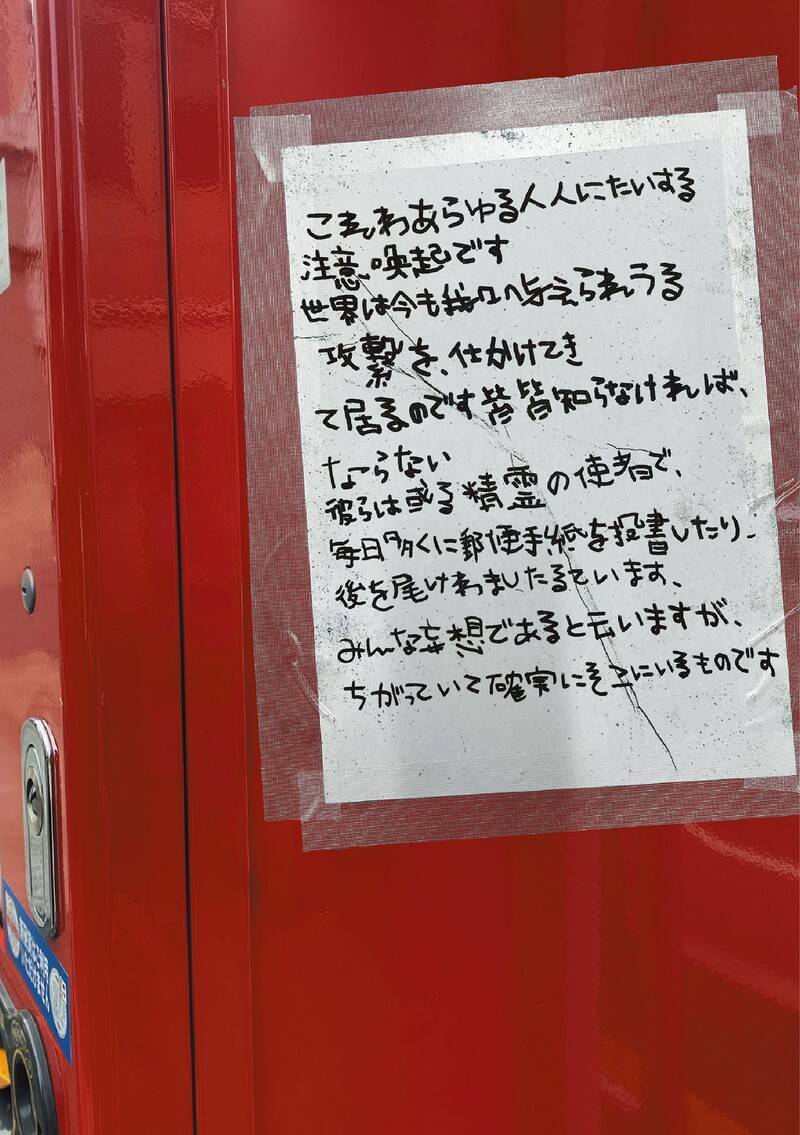 これわあらゆる人人にたいする
注意喚起です
世界は今も我々へ与えられうる
攻繋を、仕かけてき
て居るのです皆皆知らなければ、
ならない
彼らは或る精霊の使者で、
毎日多くに郵便手紙を投書したり、
後を尾けわましたるています、
みんな妄想であると云いますが、
ちがっていて確実にそこにいるものです